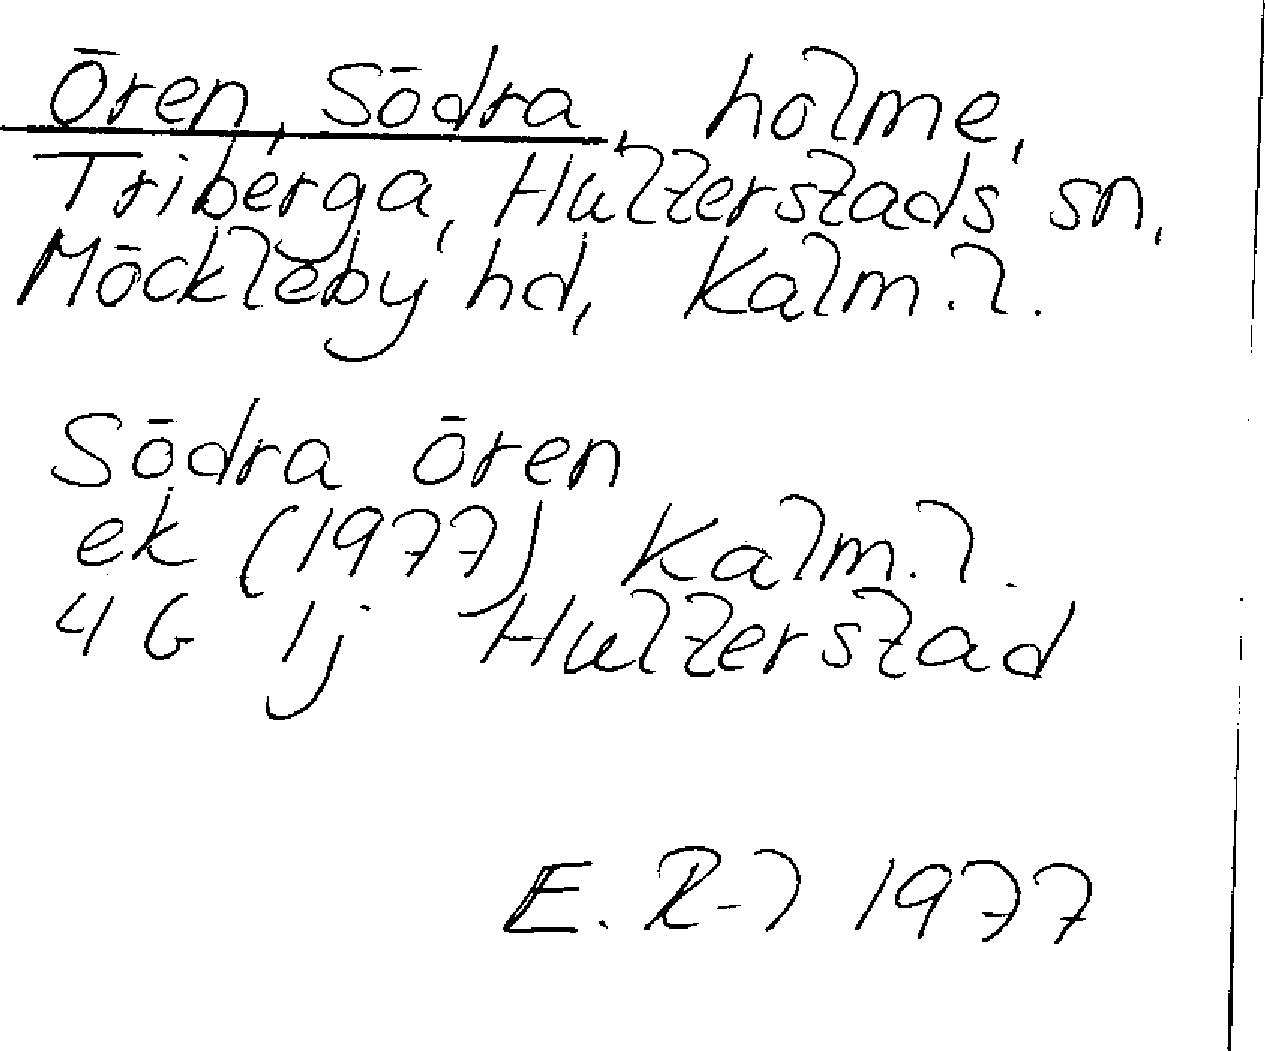 Ören, Södra, holme,
Triberga, Hulterstads sn,
Möckleby hd, Kalm.l.
Södra ören
ek (1977) Kalm.l.
4G 1j Hulterstad
E. R-l 1977